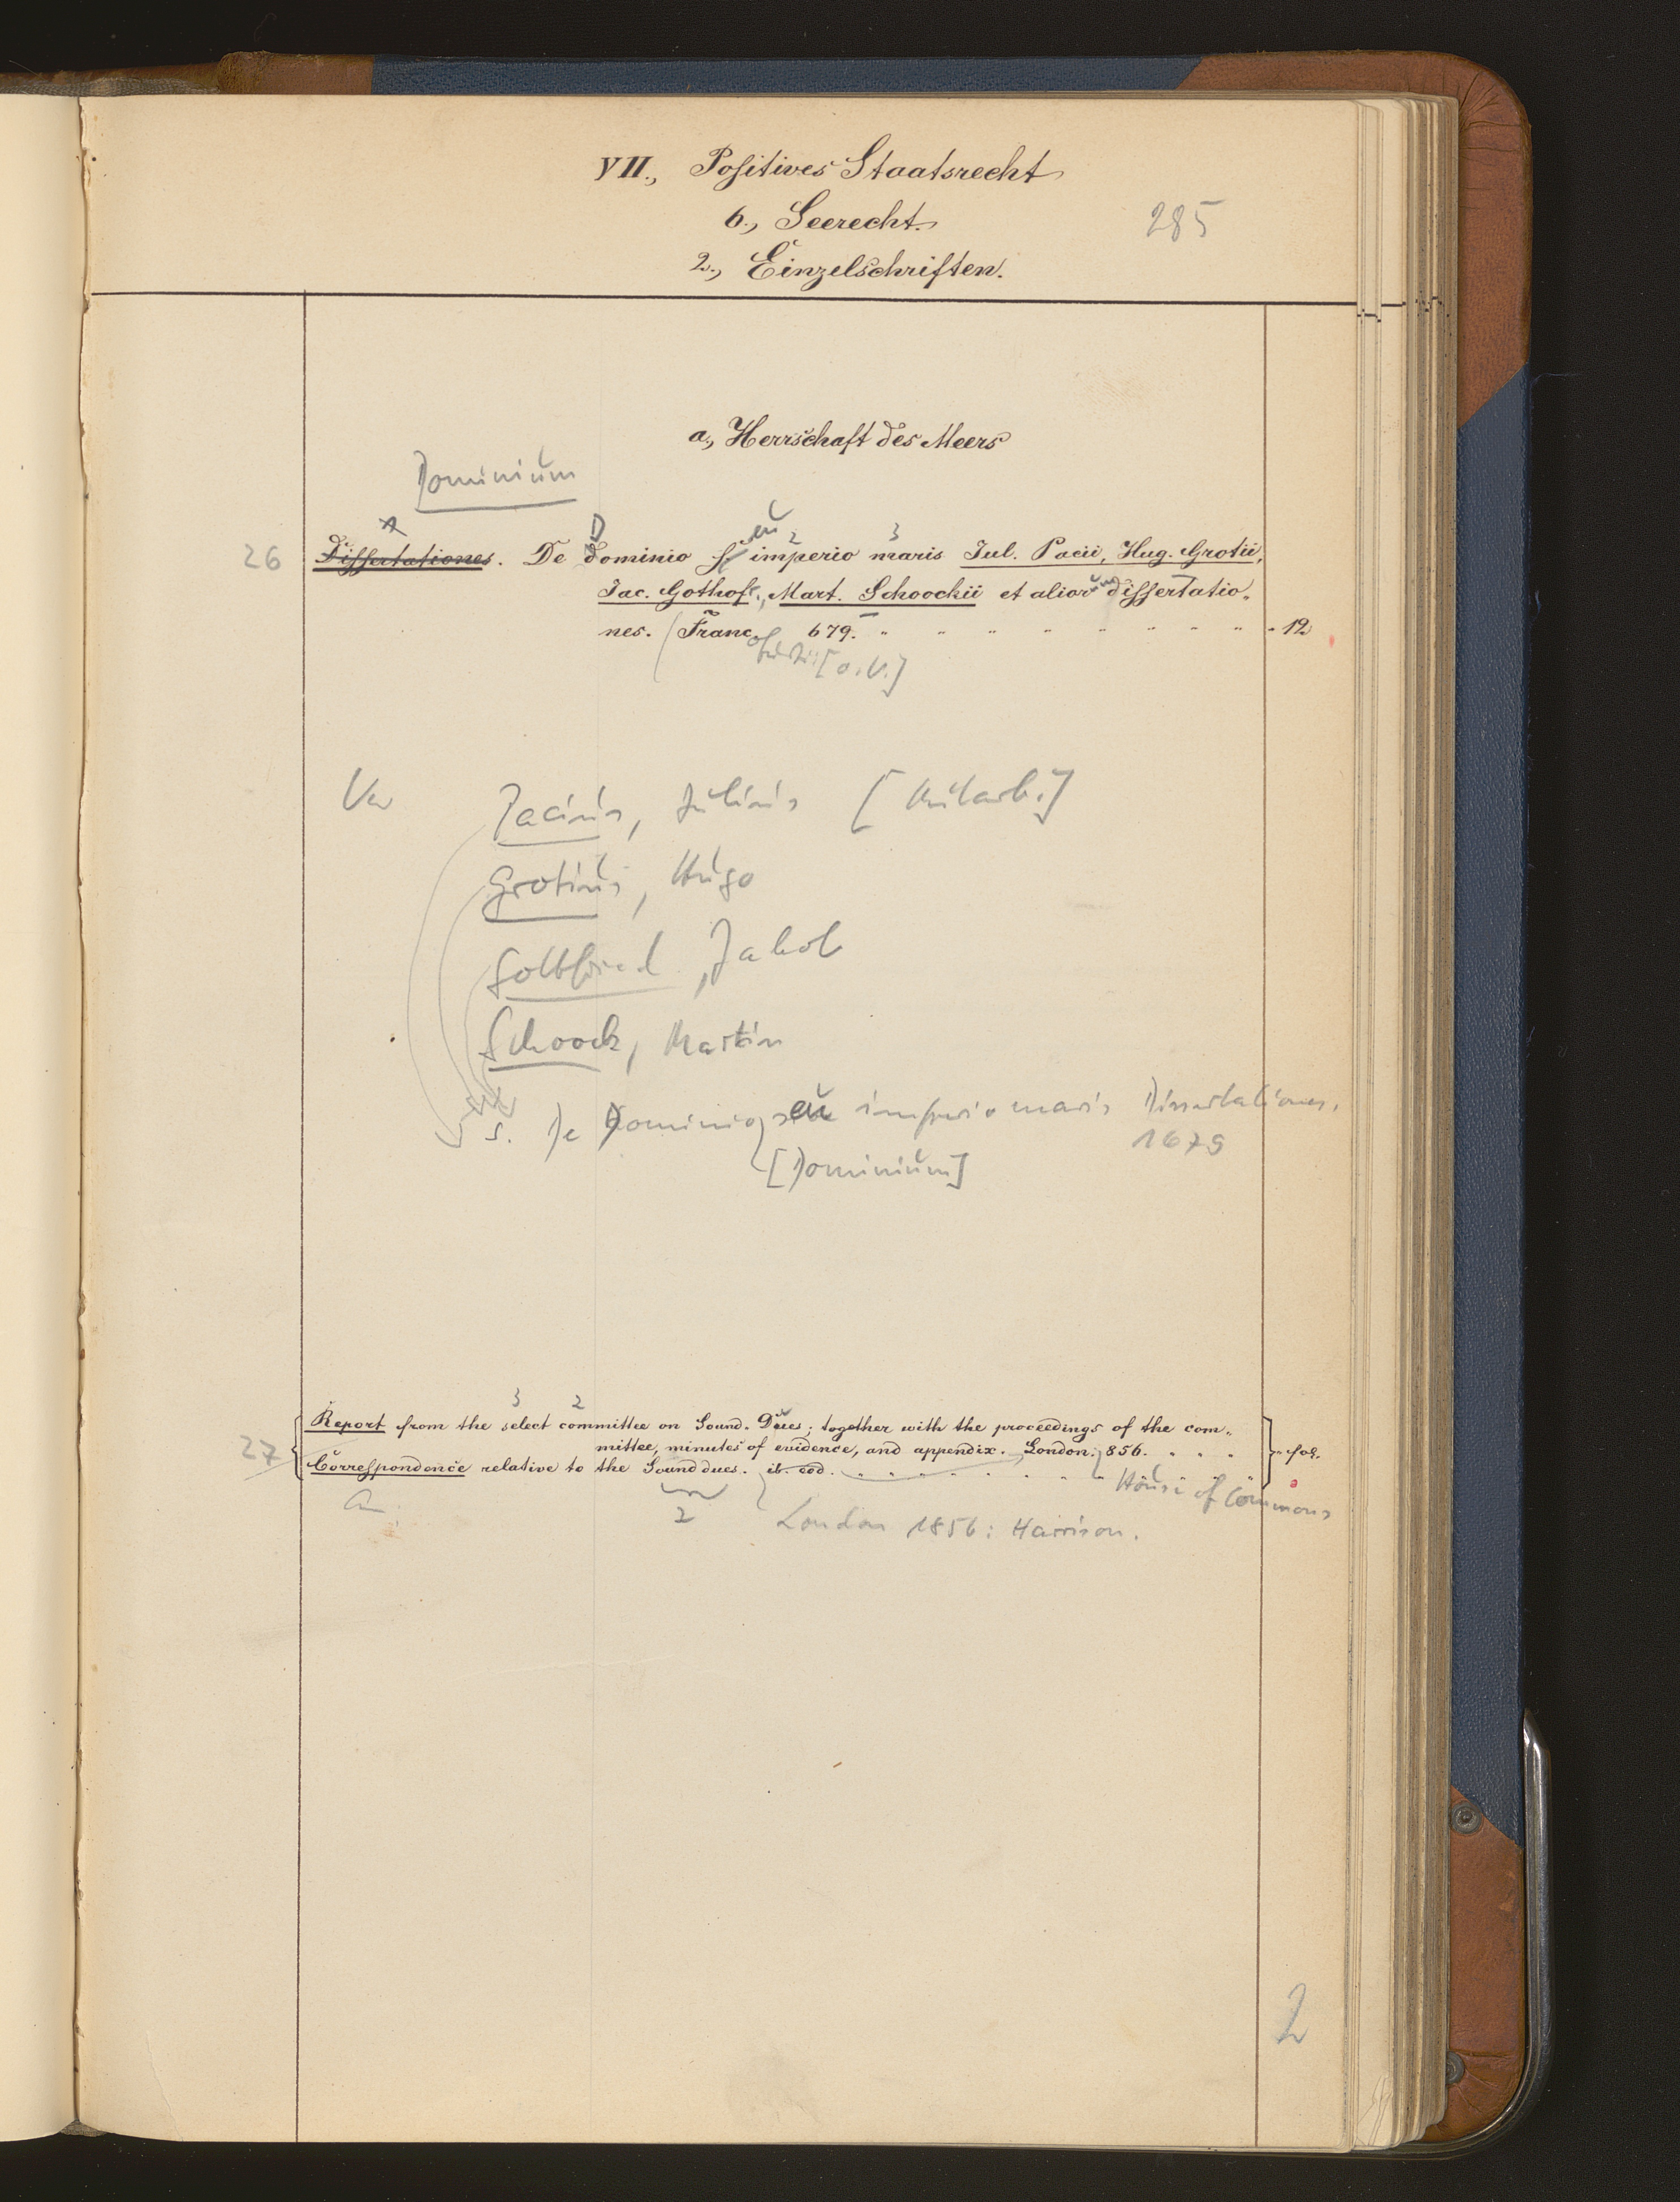 VII., Positives Staatsrecht
6., Seerecht.
285
2., Einzelschriften.
a., Herrschaft des Meers
Dominium
26 Dissertationes. De Dominio seu imperio maris Jul. Pacii, Hug. Grotii,
Jac. Gothofr., Mart. Schoockii et aliorum dissertatio„
nes. Franc 679. „ „ „ „ „ „ „ „ „ 12
[o. V.]
Vw Pacius, Julius [Mitarb.]
Grotius, Hugo
Gottfried, Jakob
Schoock, Martin
s. De Dominio seu imperio maris Dissertationes.
1679
[Dominium]
3 2
27 Report from the select committee on Sound. Dues; together with the proceedings of the com„
mittee, minutes of evidence, and appendix. London. 856. „ „ „ „ fol.
Correspondence relative to the Sound dues. ib. eod. „ „ „ „ „ „ „ „
House of Commons
2 London 1856: Harrison.
2